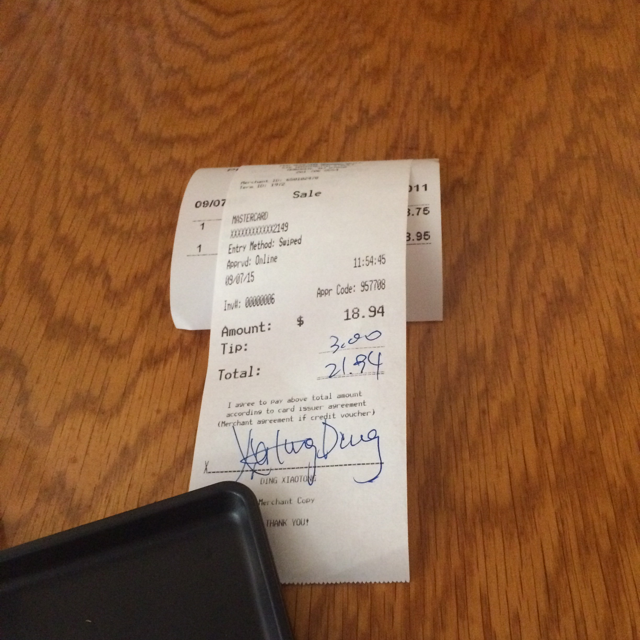 Sale
09/07
011
MASTERCARD
XXXXXXXXXXXX2149
1
.75
Entry Method: Swiped
1
.95
Apprvd: Online
09/07/15 11:54:45
Inv#: 00000006 Appr Code: 957708
Amount: $ 18.94
Tip: 3.00
Total: 21.94
I agree to pay above total amount
according to card issuer agreement
(Merchant agreement if credit voucher)
X
DING XIAOTONG
Merchant Copy
THANK YOU!